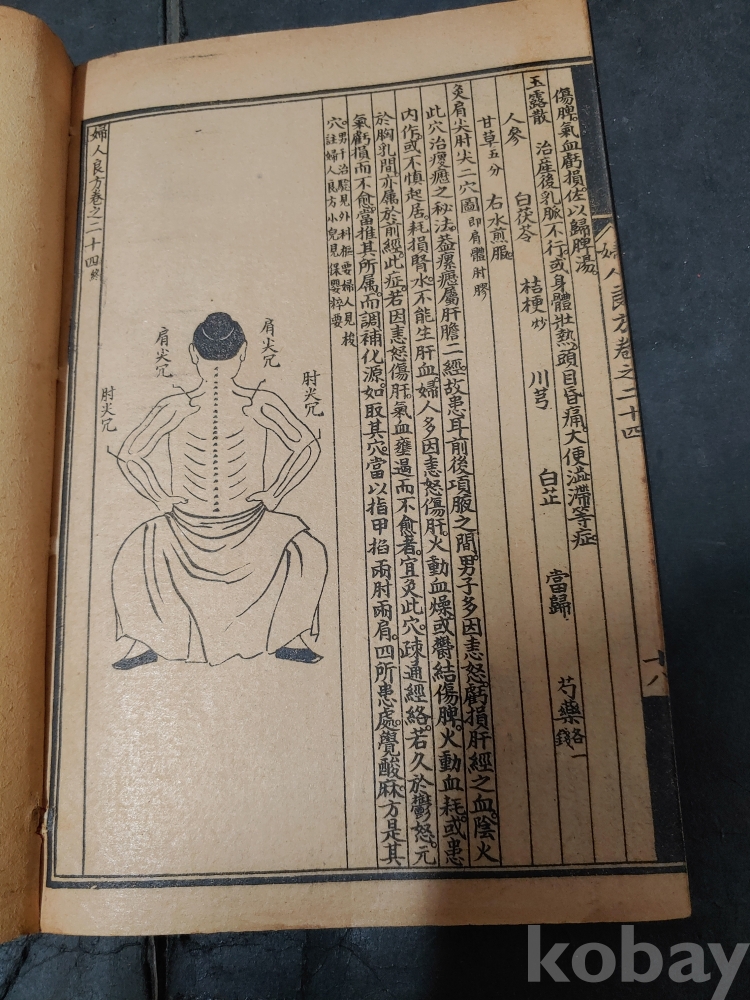 婦人良方卷之二十四
十八
傷脾。氣血虧損佐以歸脾湯。
玉露散 治產後乳脈不行。或身體壯熱。頭目昏痛。大便澁滯等症
人參 白茯苓 桔梗炒 川芎 白芷 當歸 芍藥各一錢
甘草五分 右水煎服。
灸肩尖肘尖二穴圖 即肩髃肘膠
此穴治瘦癧之秘法。蓋瘰癧屬肝膽二經。故患耳前後項腋之間。男子多因恚怒虧損肝經之血。陰火
內作。或不慎起居。耗損腎水。不能生肝血。婦人多因恚怒傷肝。火動血燥。或鬱結傷脾。火動血耗。或患
於胸乳間。亦屬於前經。此症若因恚怒傷肝。氣血壅遏而不愈者。宜灸此穴。疎通經絡。若久於鬱怒。元
氣虧損而不愈。當推其所屬。而調補化源。如取其穴。當以指甲掐兩肘兩肩。四所患處。覺酸麻。方是其
穴。男子治驗見外科樞要。婦人見校
註婦人良方。小兒見保嬰粹要
肩尖穴
肘尖穴
肩尖穴
肘尖穴
婦人良方卷之二十四終
kobay